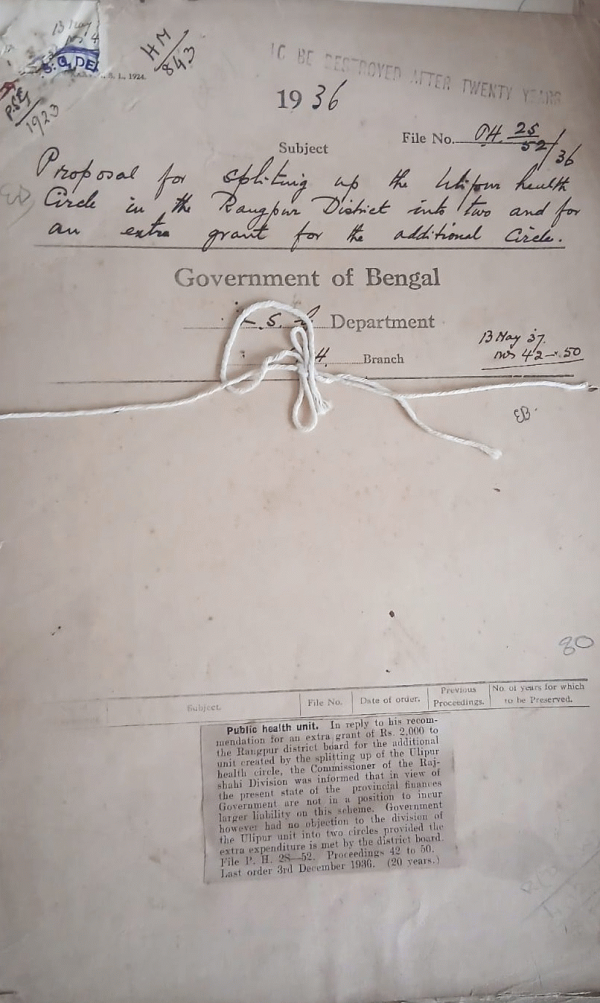 13 May
S. G. DE
L., 1924.
HM
843
1923
TO BE DESTROYED AFTER TWENTY YEARS
1936
File No. P.H. 2S/52/36
Subject
Proposal for spliting up the Ulipur health
Circle in the Rangpur District into two and for
an extra grant for the additional Circle.
Government of Bengal
S. Department
H. Branch
13 May '37.
Nos 42-50
EB.
80
Subject. File No. Date of order. Previous Proceedings. No. of years for which to be Preserved.
Public health unit. In reply to his recom-
mendation for an extra grant of Rs. 2,000 to
the Rangpur district board for the additional
unit created by the splitting up of the Ulipur
health circle, the Commissioner of the Raj-
shahi Division was informed that in view of
the present state of the provincial finances
Government are not in a position to incur
larger liability on this scheme. Government
however had no objection to the division of
the Ulipur unit into two circles provided the
extra expenditure is met by the district board.
File P. H. 2S—52. Proceedings 42 to 50.
Last order 3rd December 1936. (20 years.)